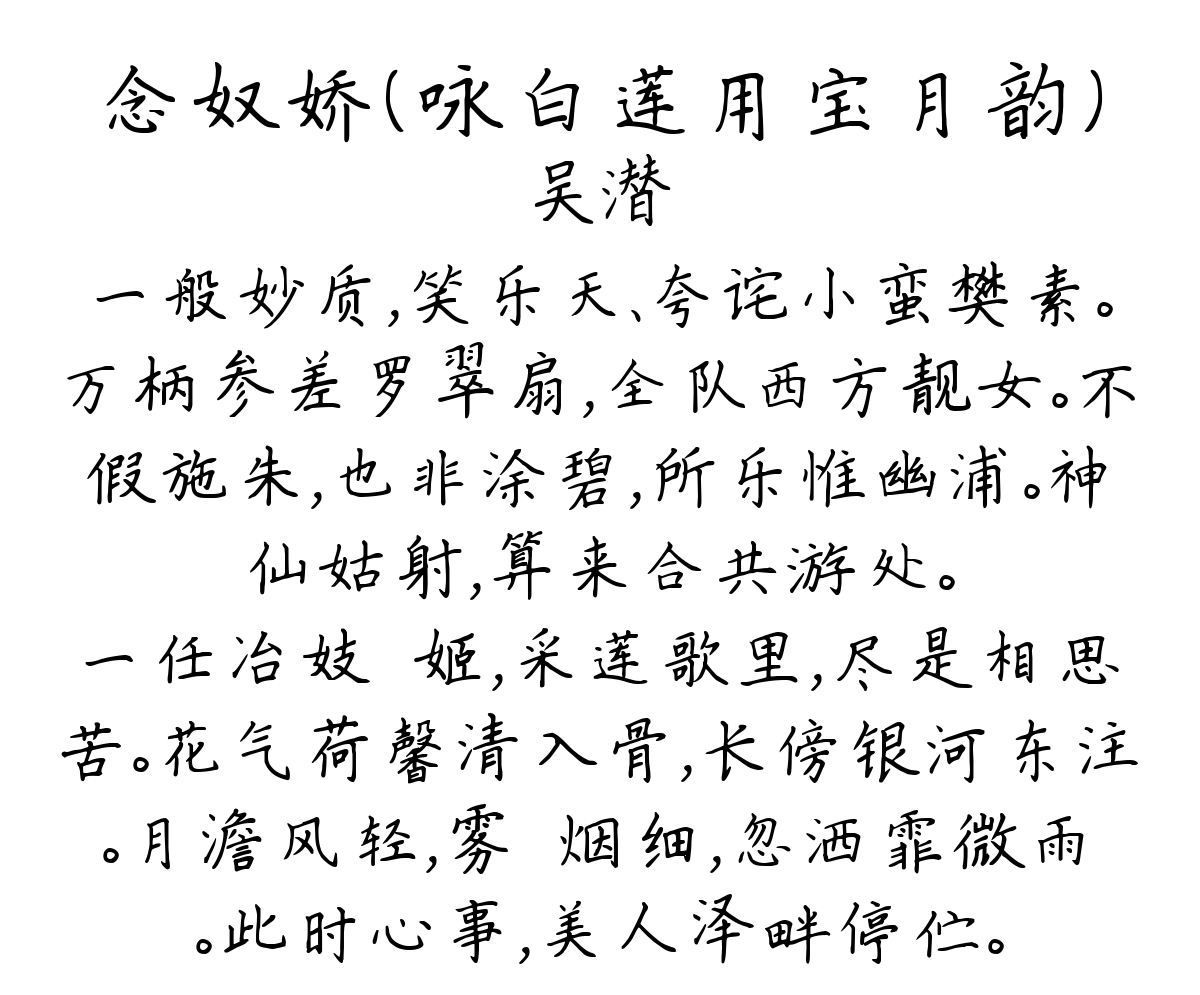 念奴娇(咏白莲用宝月韵)
吴潜
一般妙质,笑乐天、夸诧小蛮樊素。
万柄参差罗翠扇,全队西方靓女。不
假施朱,也非涂碧,所乐惟幽浦。神
仙姑射,算来合共游处。
一任冶妓 姬,采莲歌里,尽是相思
苦。花气荷馨清入骨,长傍银河东注
。月澹风轻,雾 烟细,忽洒霏微雨
。此时心事,美人泽畔停伫。